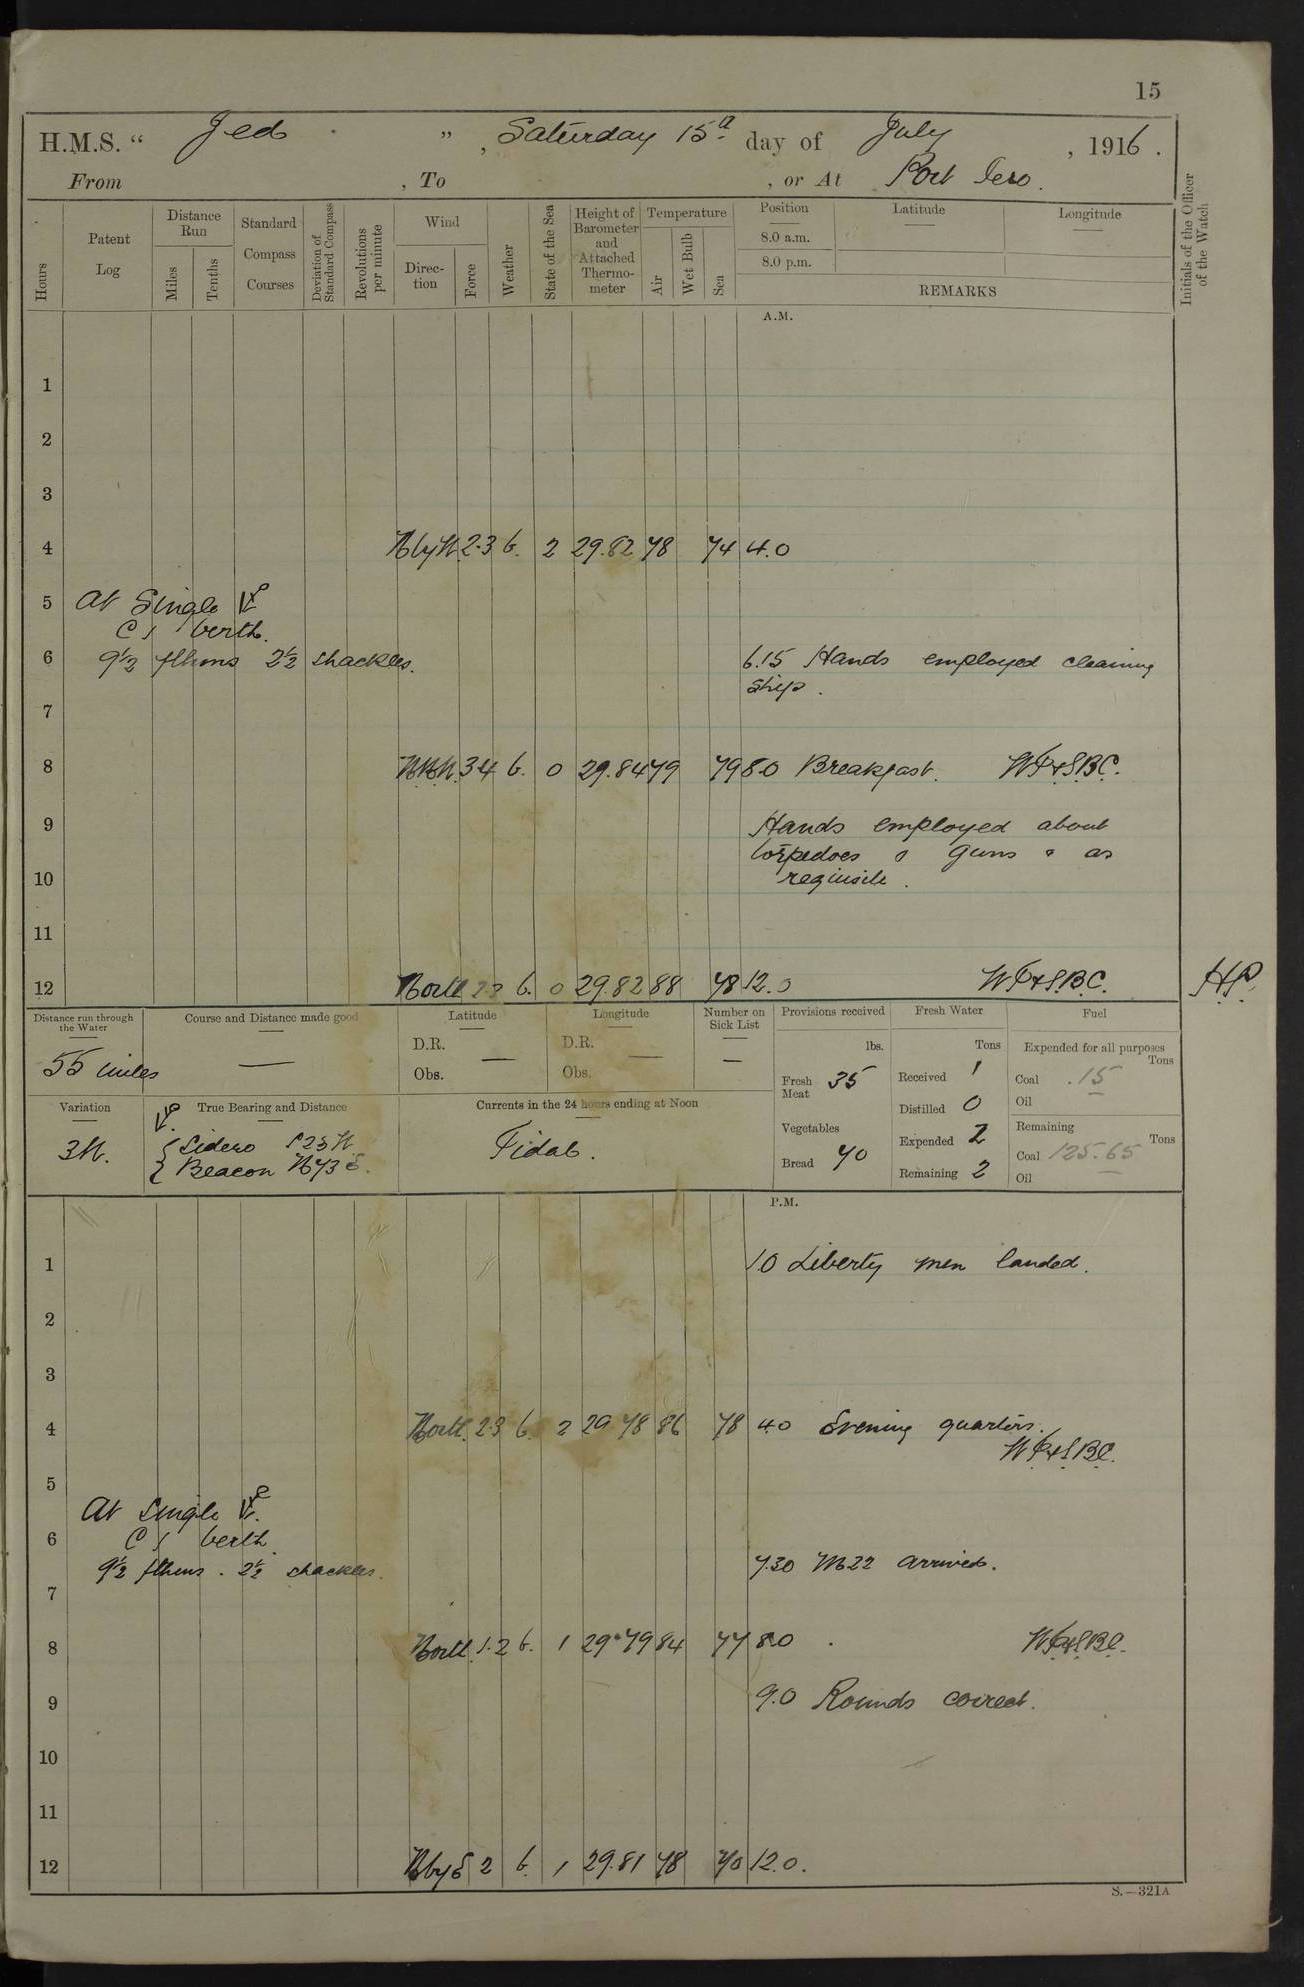 15
H.M.S. “ Jed ”, Saturday 15th day of July, 1916.
From , To , or At Port Iero.
Hours
Patent Log
Distance Run
Miles
Tenths
Standard Compass Courses
Deviation of Standard Compass
Revolutions per minute
Wind
Direction
Force
Weather
State of the Sea
Height of Barometer and Attached Thermometer
Temperature
Air
Wet Bulb
Sea
Position
8.0 a.m.
8.0 p.m.
Latitude
Longitude
REMARKS
Initials of the Officer of the Watch
A.M.
1
2
3
4 NbyW. 2·3 b. 2 29.82 78 74 4.0
5 At Single
CS berth.
6 9½ fthms 2½ shackles. 6.15 Hands employed cleaning
ship.
7
8 NNW. 34 b. 0 29.84 79 79 8.0 Breakfast.
9 Hands employed about
torpedoes & guns & as
10 requisite.
11
12 North 2·3 b. 0 29.82 88 78 12.0
Distance run through the Water
55 miles
Course and Distance made good
—
Latitude
D.R. —
Obs.
Longitude
D.R. —
Obs.
Number on Sick List
—
Provisions received
lbs.
Fresh Meat 35
Vegetables
Bread 70
Fresh Water
Tons
Received 1
Distilled 0
Expended 2
Remaining 2
Fuel
Expended for all purposes
Tons
Coal .15
Oil
Remaining
Tons
Coal 125.65
Oil
Variation
3W.
True Bearing and Distance
Sidero S23W
Beacon N73E.
Currents in the 24 hours ending at Noon
Tidal.
P.M.
1 1.0 Liberty men landed.
2
3
4 North 2·3 b. 2 29 78 86 78 4.0 Evening quarters.
5
At single
6 CS berth
9½ fthms. 2½ shackles. 7.30 M22 arrived.
7
8 North 1·2 b. 1 29·79 84 77 8.0
9 9.0 Rounds correct.
10
11
12 NbyE 2 b. 1 29.81 78 70 12.0.
S.—321A